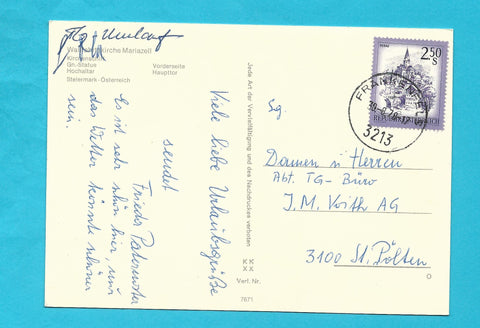 Wallfahrtskirche Mariazell
Gn.-Status
Vorderseite
Hochaltar
Haupttor
Steiermark-Österreich
Viele liebe Urlaubsgrüße
sendet
Frieda Paternoster
Es ist sehr schön hier, nur
das Wetter könnte schöner
sein.
Jede Art der Vervielfältigung und des Nachdruckes verboten
Verl. Nr.
7671
2.50
S
REPUBLIK ÖSTERREICH
FRANKENFELS
3213
Damen u Herren
Abt. TG-Büro
J.M. Voith AG
3100 St. Pölten